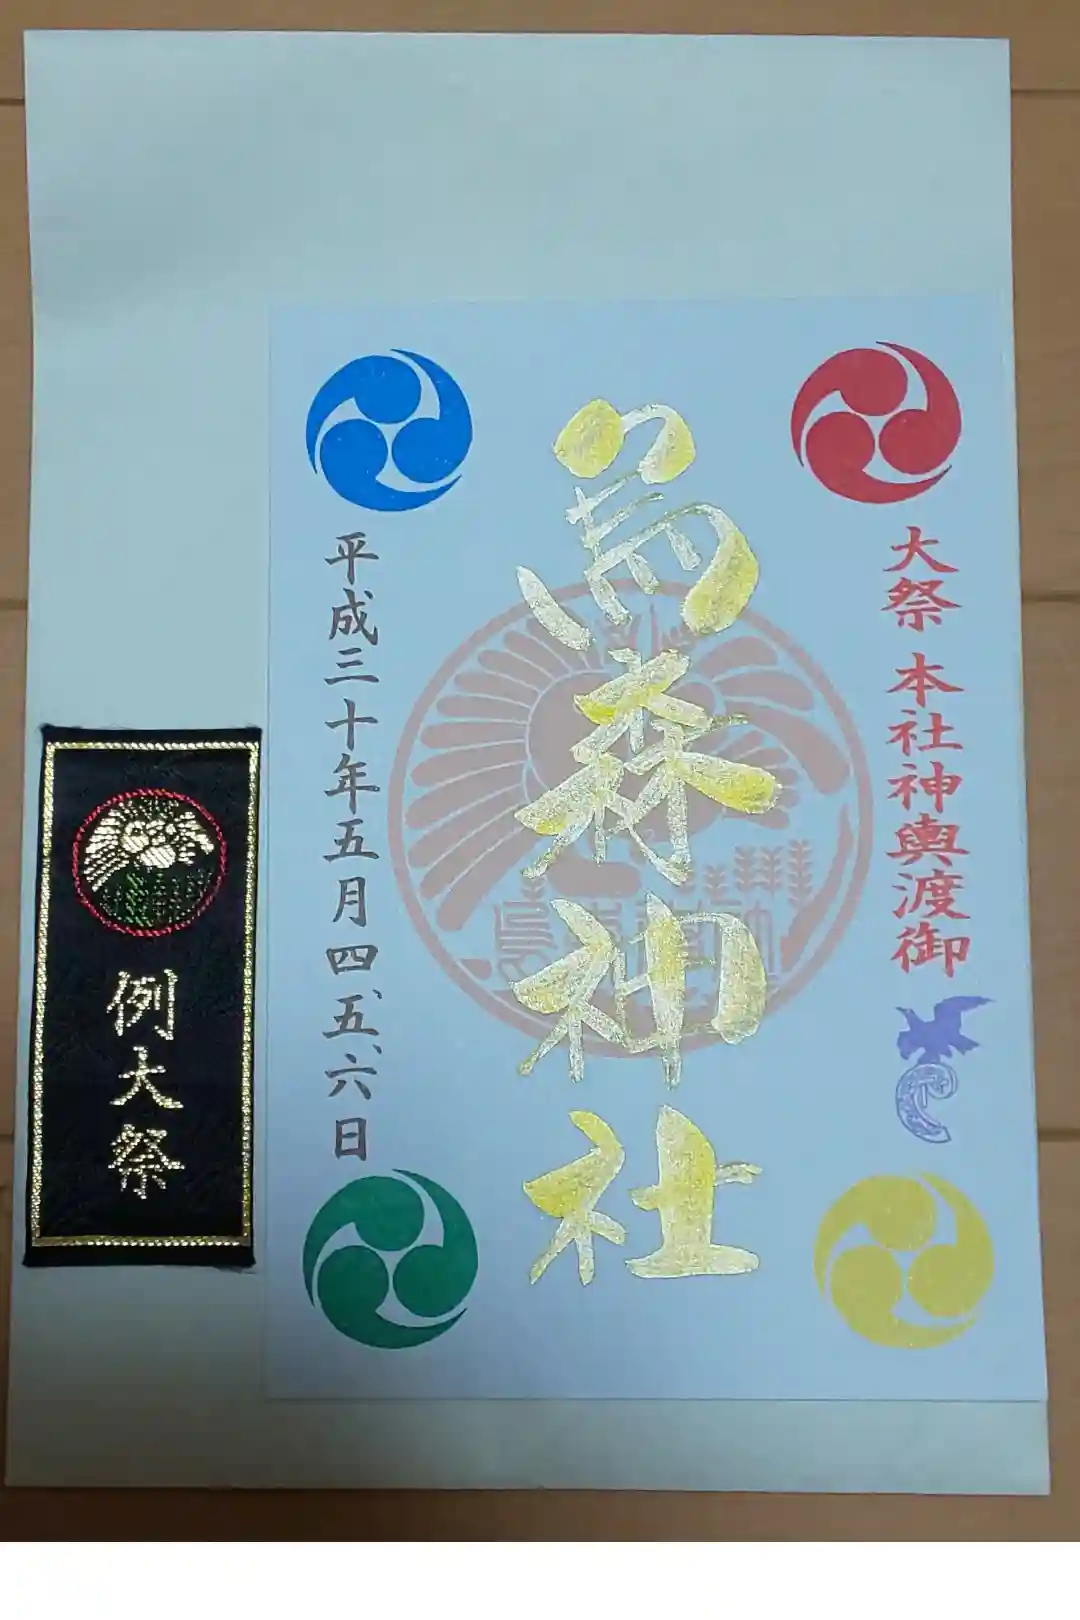 大祭 本社神輿渡御
烏森神社
平成三十年五月四、五、六日
例大祭